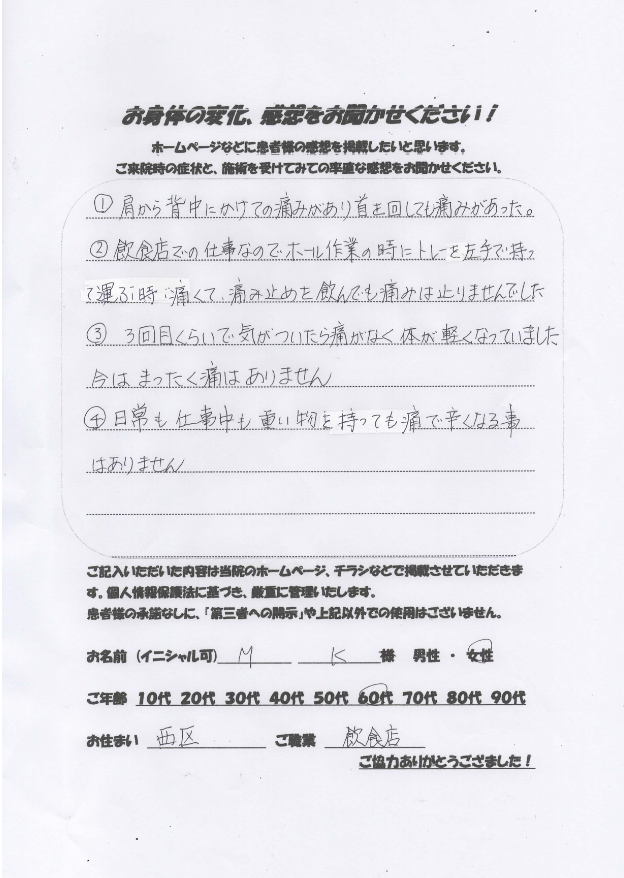 お身体の変化、感想をお聞かせください！
ホームページなどに患者様の感想を掲載したいと思います。
ご来院時の症状と、施術を受けてみての率直な感想をお聞かせください。
① 肩から背中にかけての痛みがあり首を回しても痛みがあった。
② 飲食店での仕事なのでホール作業の時にトレーを左手で持っ
て運ぶ時に痛くて、痛み止めを飲んでも痛みは止りませんでした
③ 3回目くらいで気がついたら痛がなく体が軽くなっていました
今はまったく痛はありません
④ 日常も仕事中も重い物を持っても痛で辛くなる事
はありません
ご記入いただいた内容は当院のホームページ、チラシなどで掲載させていただきま
す。個人情報保護法に基づき、厳重に管理いたします。
患者様の承諾なしに、「第三者への開示」や上記以外での使用はございません。
お名前（イニシャル可） M K 様 男性 ・ 女性
ご年齢 10代 20代 30代 40代 50代 60代 70代 80代 90代
お住まい 西区 ご職業 飲食店
ご協力ありがとうござました！